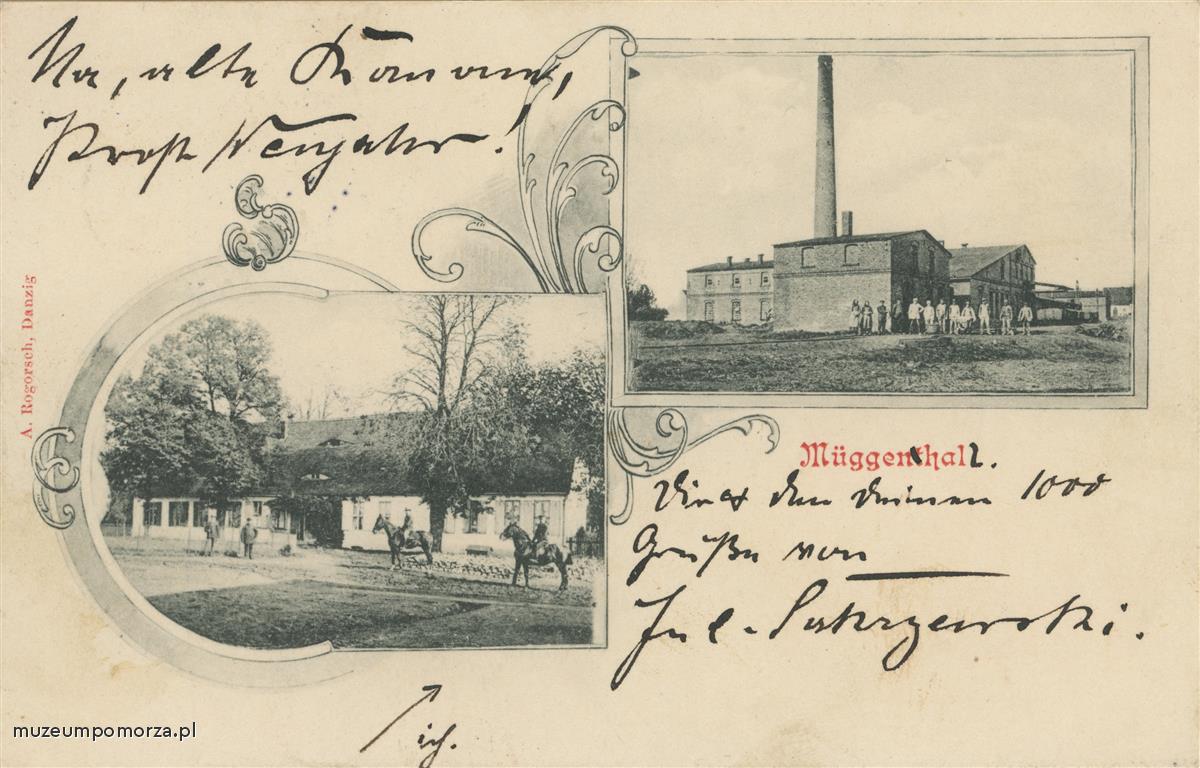 Na, alte Kanone,
Prost Neujahr!
A. Rogorsch, Danzig
Müggenhall.
Dir & den Deinen 1000
Grüße von
Jul. Sakrzewski.
ich.
muzeumpomorza.pl